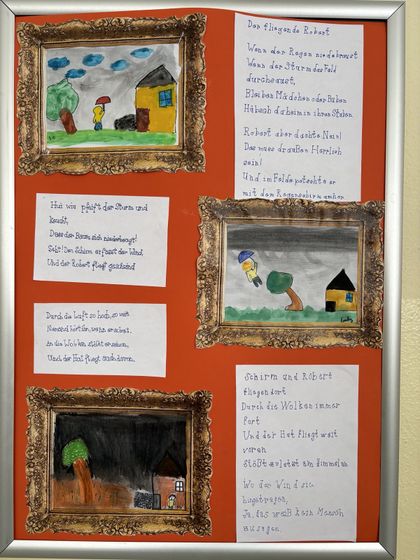 Der fliegende Robert
Wenn der Regen niederbraust
Wenn der Sturm das Feld
durchsaust,
Bleiben Mädchen oder Buben
Hübsch daheim in ihren Stuben.
Robert aber dachte Nein!
Das muss draußen Herrlich
sein!
Und im Felde patschte er
mit dem Regenschirm umher.
Hui wie pfeift der Sturm und
keucht,
Dass der Baum sich niederbeugt!
Seht! Den Schirm erfasst der Wind,
Und der Robert fliegt
Durch die Luft so hoch, so weit
Niemand hört ihn, wenn er schreit.
An die Wolken stößt er schon,
Und der Hut fliegt auch davon.
Schirm und Robert
fliegen dort
Durch die Wolken immer
fort
Und der Hut fliegt weit
voran
Stößt zuletzt am Himmel an.
Wo der Wind sie
hingetragen,
Ja, das weiß kein Mensch
zu sagen.